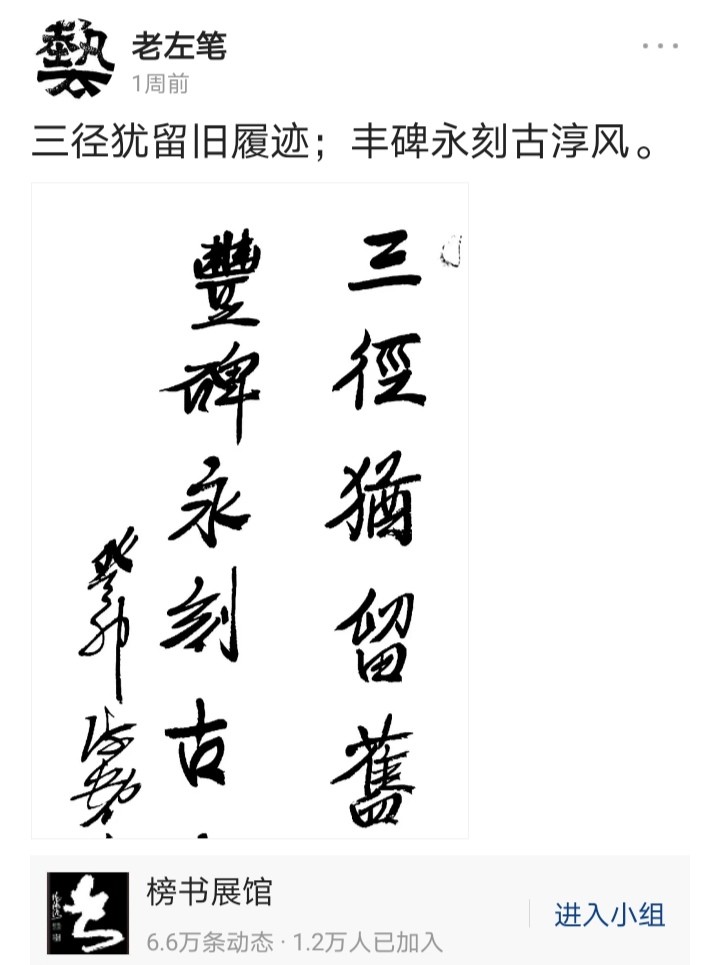 藝
老左笔
1周前
三径犹留旧履迹；丰碑永刻古淳风。
三徑猶留舊
豐碑永刻古
癸卯
榜书展馆
6.6万条动态 · 1.2万人已加入
进入小组